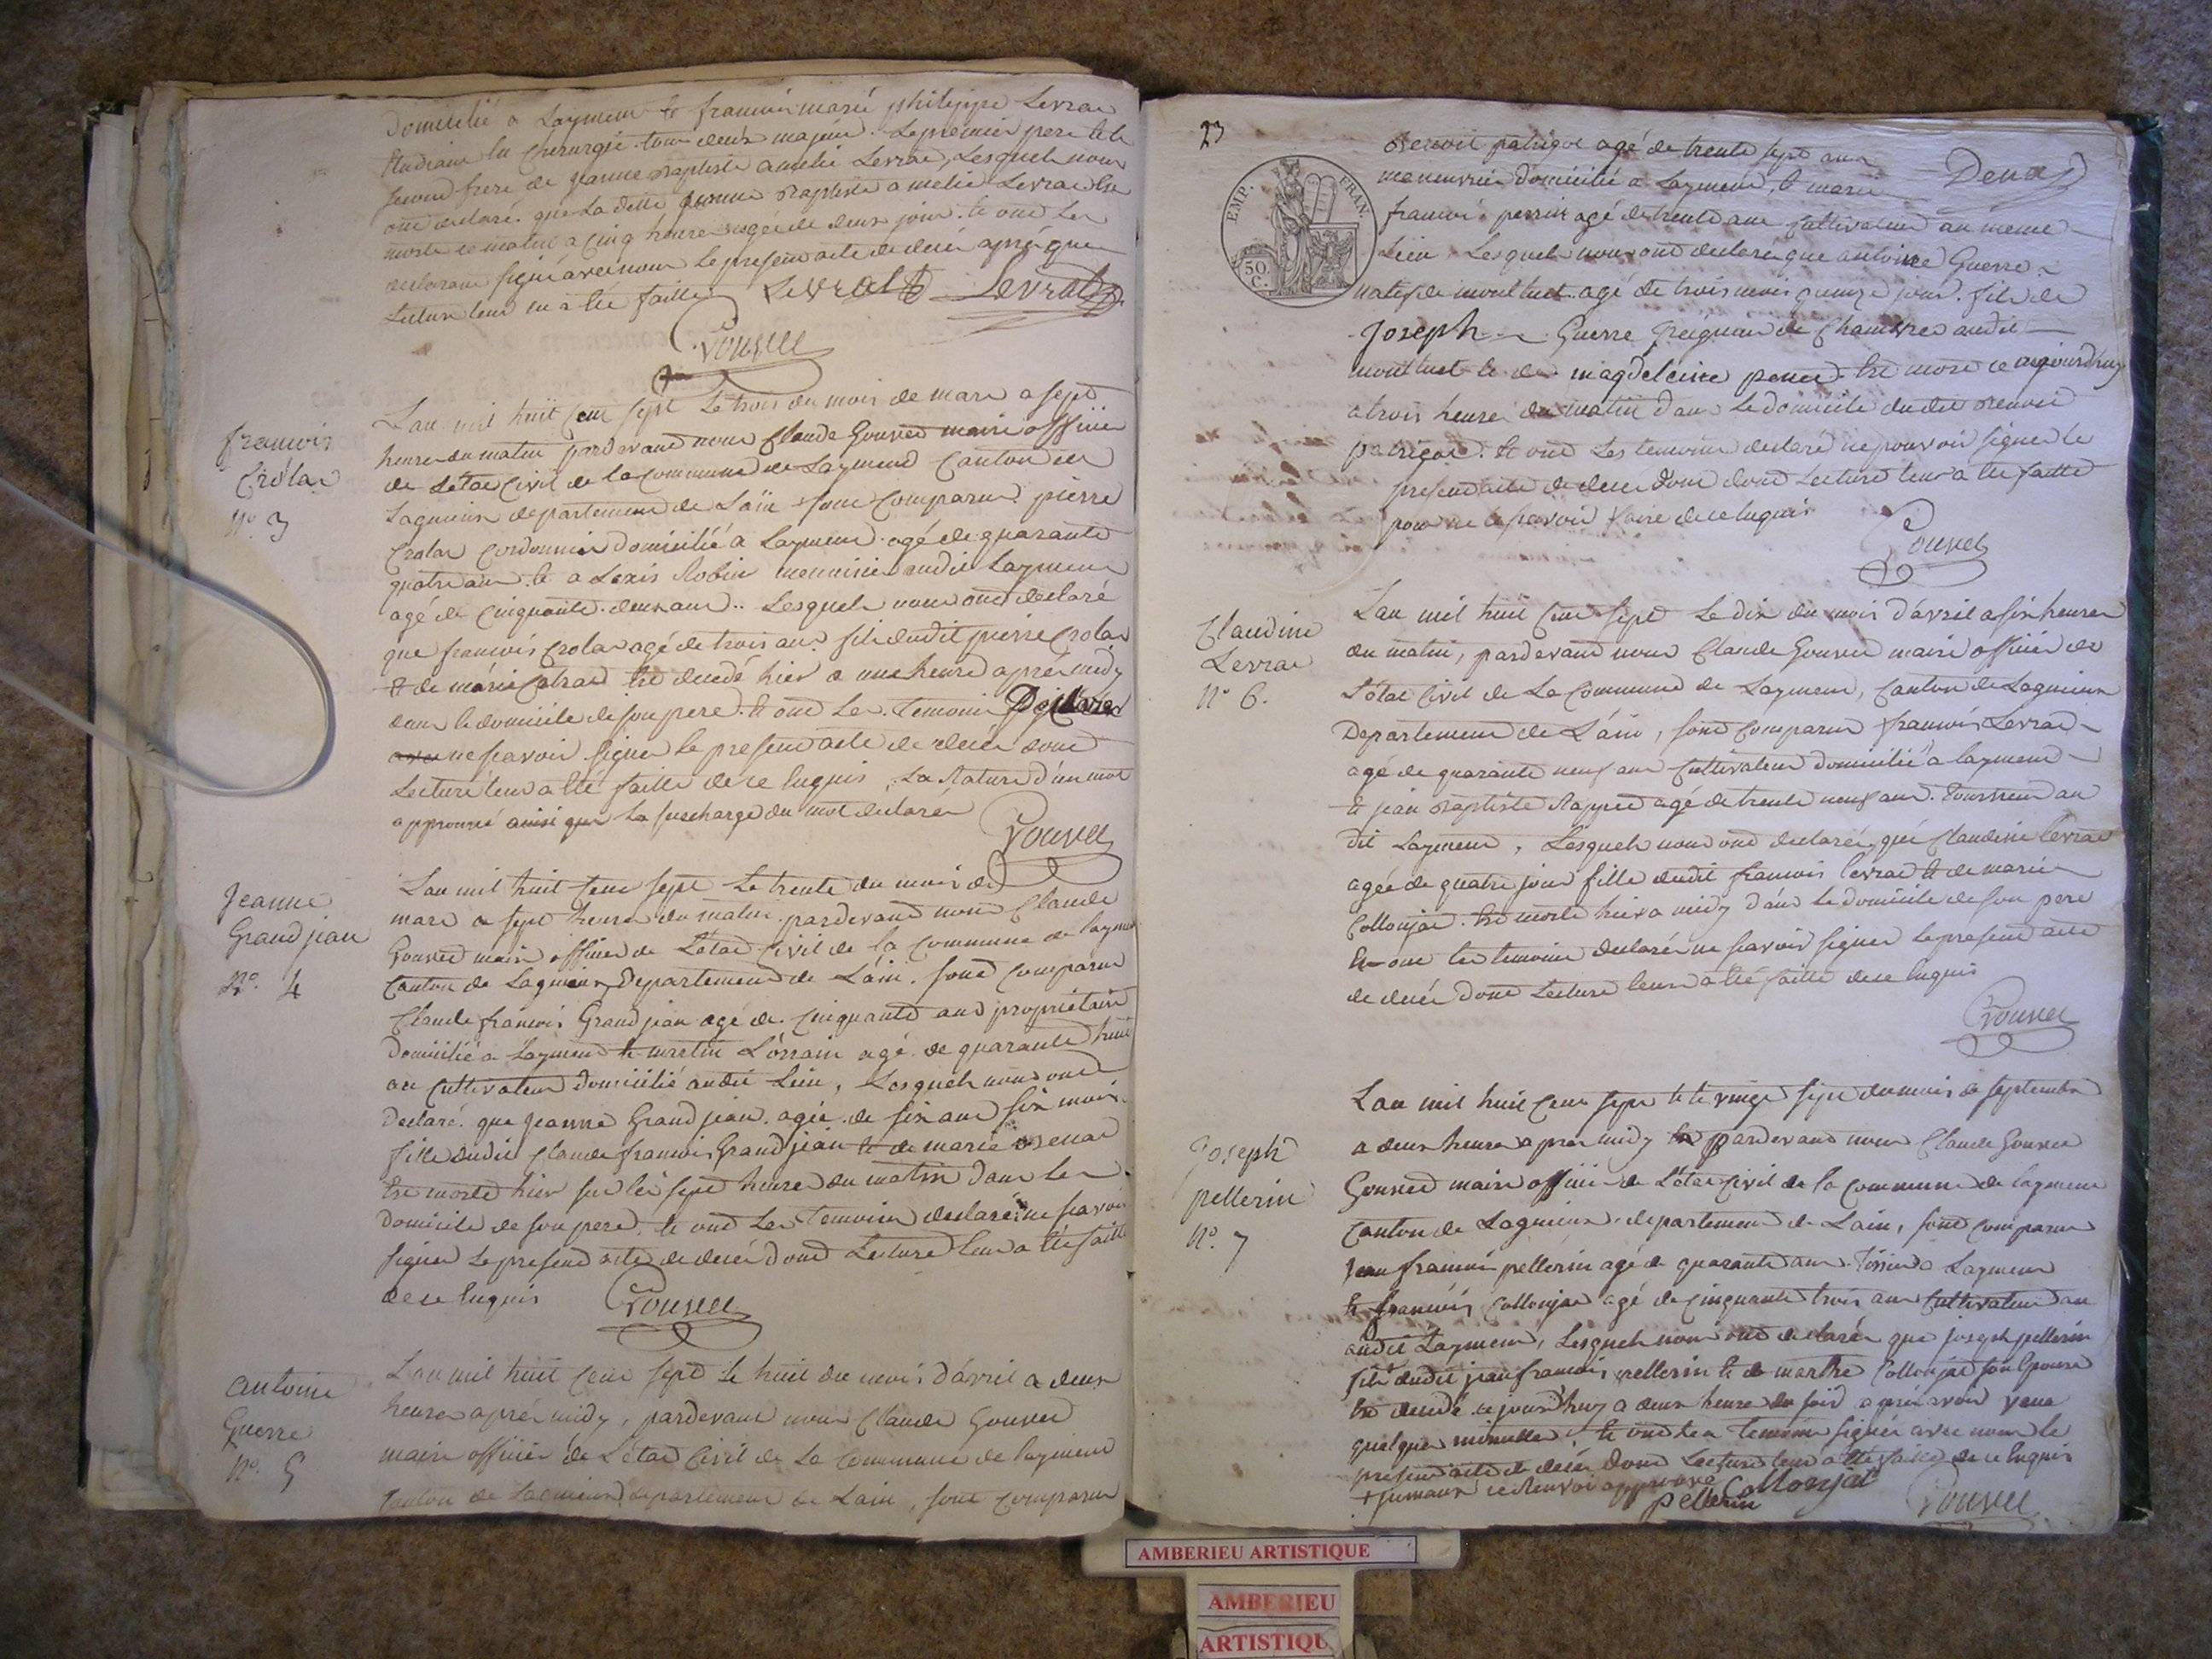 Domicilié a Laymend et francois marie philippe Levrat
Etudiant En Chirurgie tous deux majeur. Le premier pere et le
second frere de Jeanne Baptiste amelie Levrat, Lesquels nous
ont declaré que La ditte Jeanne Baptiste amelie Levrat Est
morte ce matin a cinq heures agée de deux jour. et ont Les
declarant signé avec nous Le present acte de décés aprés que
Lecture leur en a été faitte
Levrat Levrat
Gouvet
francois
Crolat
N° 3
L'an mil huit cent sept Le trois du mois de mars a sept
heures du matin pardevant nous Claude Gouvet maire officier
de Letat Civil de la Commune de Laymend Canton de
Lagnieux departement de Lain sont Comparus pierre
Crolat Cordonnier domicilié a Laymend agé de quarante
quatre ans. et a Lexis Robin menuisier audit Laymend
agé de cinquante deux ans.. Lesquels nous ont declaré
que francois Crolat agé de trois ans. fils dudit pierre Crolat
et de marie Est decedé hier a une heure aprés midy
dans le domicile de son pere. et ont Les Temoins Declarer
ne scavoir signer le present acte de décés dont
Lecture leur a été faitte de ce Enquis. La Rature d'un mot
approuvé ainsi que La surcharge du mot declarér
Gouvet
Jeanne
Grandjean
N°. 4
L'an mil huit cent sept Le trente du mois de
mars a sept heures du matin. pardevant nous Claude
Gouvet maire officier de L'état Civil de la Commune de laymend
Canton de Lagnieux, Departement de Lain. sont Comparus
Claude francois Grandjean agé de cinquante ans propriétaire
domicilié a Laymend et martin Lorrain agé de quarante huit
an Cultivateur domicilié audit Lieu, Lesquels nous ont
Declaré que Jeanne Grandjean. agée de six ans six mois.
fille dudit Claude francois Grandjean et de marie Benat
Est morte hier sur les sept heures du matin dans le
domicile de son pere. et ont Les Temoins declaré ne scavoir
signer Le present acte de décés dont Lecture leur a été faitte
de ce Enquis
Gouvet
Antoine
Guerre
N°. 5
L'an mil huit cent sept le huit du mois d'avril a deux
heures aprés midy, pardevant nous Claude Gouvet
maire officier de L'état Civil de La Commune de laymend
Canton de Lagnieux, departement de Lain, sont Comparus
23
EMP. FRAN.
50 C.
Benoit patrigot agé de trente sept ans
manouvrier domicilié a Laymend, et marie
francois perrin agé de trente ans Cultivateur au meme
Lieu Lesquels nous ont declaré que antoine Guerre
natif de montluel agé de trois mois quinze jours. fils de
Joseph Guerre peigneur de Chanvres audit
montluel et de magdeleine Est mort ce aujourd'huy
a trois heures du matin dans Le domicile dudit Benoit
patrigot. et ont Les temoins declaré ne pouvoir signer le
present acte de décés dont Lecture leur a été faitte
pour ne le scavoir faire de ce Enquis
Gouvet
Claudine
Levrat
N° 6.
L'an mil huit cent sept Le dix du mois d'avril a six heures
du matin, pardevant nous Claude Gouvet maire officier de
L'état Civil de La Commune de Laymend, Canton de Lagnieux
Departement de L'ain, sont Comparus francois Levrat
agé de quarante neuf ans Cultivateur domicilié a laymend
et jean Baptiste Rappet agé de trente neuf ans. au
dit Laymend, Lesquels nous ont declaré que Claudine Levrat
agée de quatre jours fille dudit francois Levrat et de marie
Collonjat. Est morte hier a midy dans Le domicile de son pere
Et ont les temoins declaré ne scavoir signer le present acte
de décés dont Lecture leur a été faitte de ce Enquis
Gouvet
Joseph
pellerin
N°. 7
L'an mil huit cent sept et le vingt sept du mois de septembre
a deux heures aprés midy pardevant nous Claude Gouvet
Gouvet maire officier de L'état Civil de la Commune de laymend
Canton de Lagnieux. departement de Lain, sont Comparus
Jean francois pellerin agé de quarante ans. Tissier a Laymend
et francois Collonjat agé de cinquante trois ans Cultivateur au
audit Laymend, Lesquels nous ont declaré que joseph pellerin
fils dudit jean francois pellerin et de marthe Collonjat son Epouse
Est decedé ce jourd'huy a deux heures du soir aprés avoir vecu
quelques minuttes, et ont Les temoins signés avec nous le
present acte de décés dont Lecture leur a été faitte de ce Enquis
ce Renvoi approuvé
pellerin Collonjat
Gouvet
AMBERIEU ARTISTIQUE
AMBERIEU
ARTISTIQU